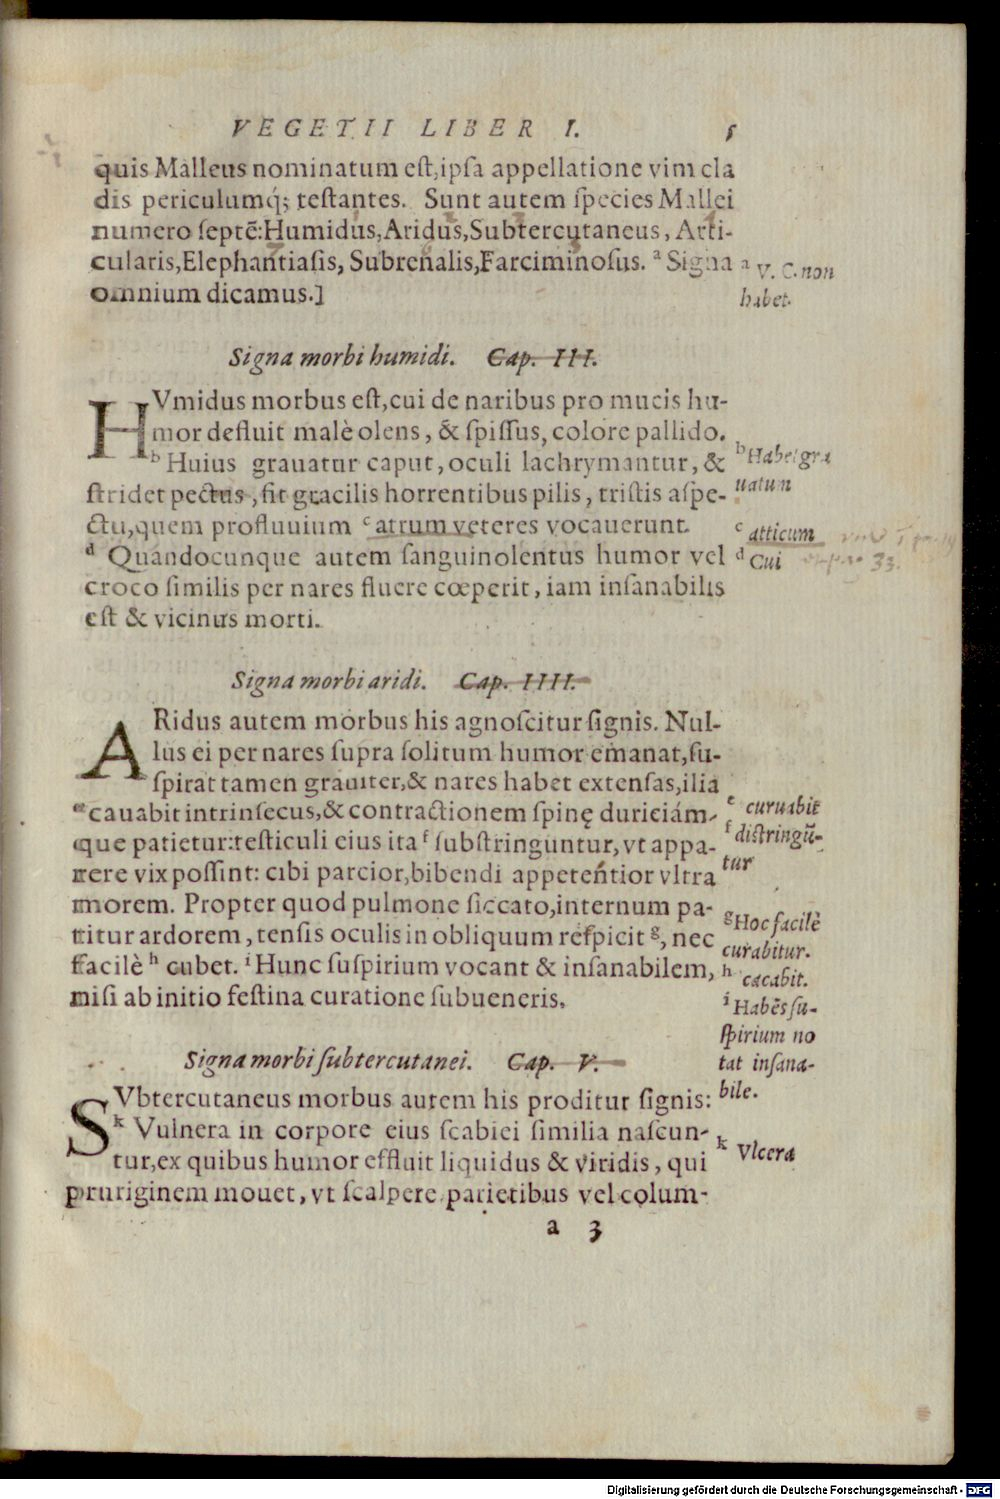 VEGETII LIBER I. 5
quis Malleus nominatum est, ipsa appellatione vim cla
dis periculumq́; testantes. Sunt autem species Mallei
numero septẽ: Humidus, Aridus, Subtercutaneus, Arti-
cularis, Elephantiasis, Subrenalis, Farciminosus. ᵃ Signa
omnium dicamus.]
ᵃ V. C. non
habet.
Signa morbi humidi. Cap. III.
HVmidus morbus est, cui de naribus pro mucis hu-
mor defluit malè olens, & spissus, colore pallido.
ᵇ Huius grauatur caput, oculi lachrymantur, &
stridet pectus, fit gracilis horrentibus pilis, tristis aspe-
ctu, quem profluuium ᶜ atrum veteres vocauerunt.
ᵈ Quandocunque autem sanguinolentus humor vel
croco similis per nares fluere cœperit, iam insanabilis
est & vicinus morti.
ᵇ Habet gra
uatum
ᶜ atticum
ᵈ Cui
Signa morbi aridi. Cap. IIII.
ARidus autem morbus his agnoscitur signis. Nul-
lus ei per nares supra solitum humor emanat, su-
spirat tamen grauiter, & nares habet extensas, ilia
ᵉ cauabit intrinsecus, & contractionem spinę duriciám-
que patietur: testiculi eius ita ᶠ substringuntur, vt appa-
rere vix possint: cibi parcior, bibendi appetentior vltra
morem. Propter quod pulmone siccato, internum pa-
titur ardorem, tensis oculis in obliquum respicit ᵍ, nec
facilè ʰ cubet. ⁱ Hunc suspirium vocant & insanabilem,
nisi ab initio festina curatione subueneris.
ᵉ curuabit
ᶠ distringũ-
tur
ᵍ Hoc facilè
curabitur.
ʰ cacabit.
ⁱ Habẽs su-
spirium no
tat insana-
bile.
Signa morbi subtercutanei. Cap. V.
SVbtercutaneus morbus autem his proditur signis:
ᵏ Vulnera in corpore eius scabiei similia nascun-
tur, ex quibus humor effluit liquidus & viridis, qui
pruriginem mouet, vt scalpere parietibus vel colum-
ᵏ Vlcera
a 3
Digitalisierung gefördert durch die Deutsche Forschungsgemeinschaft - DFG